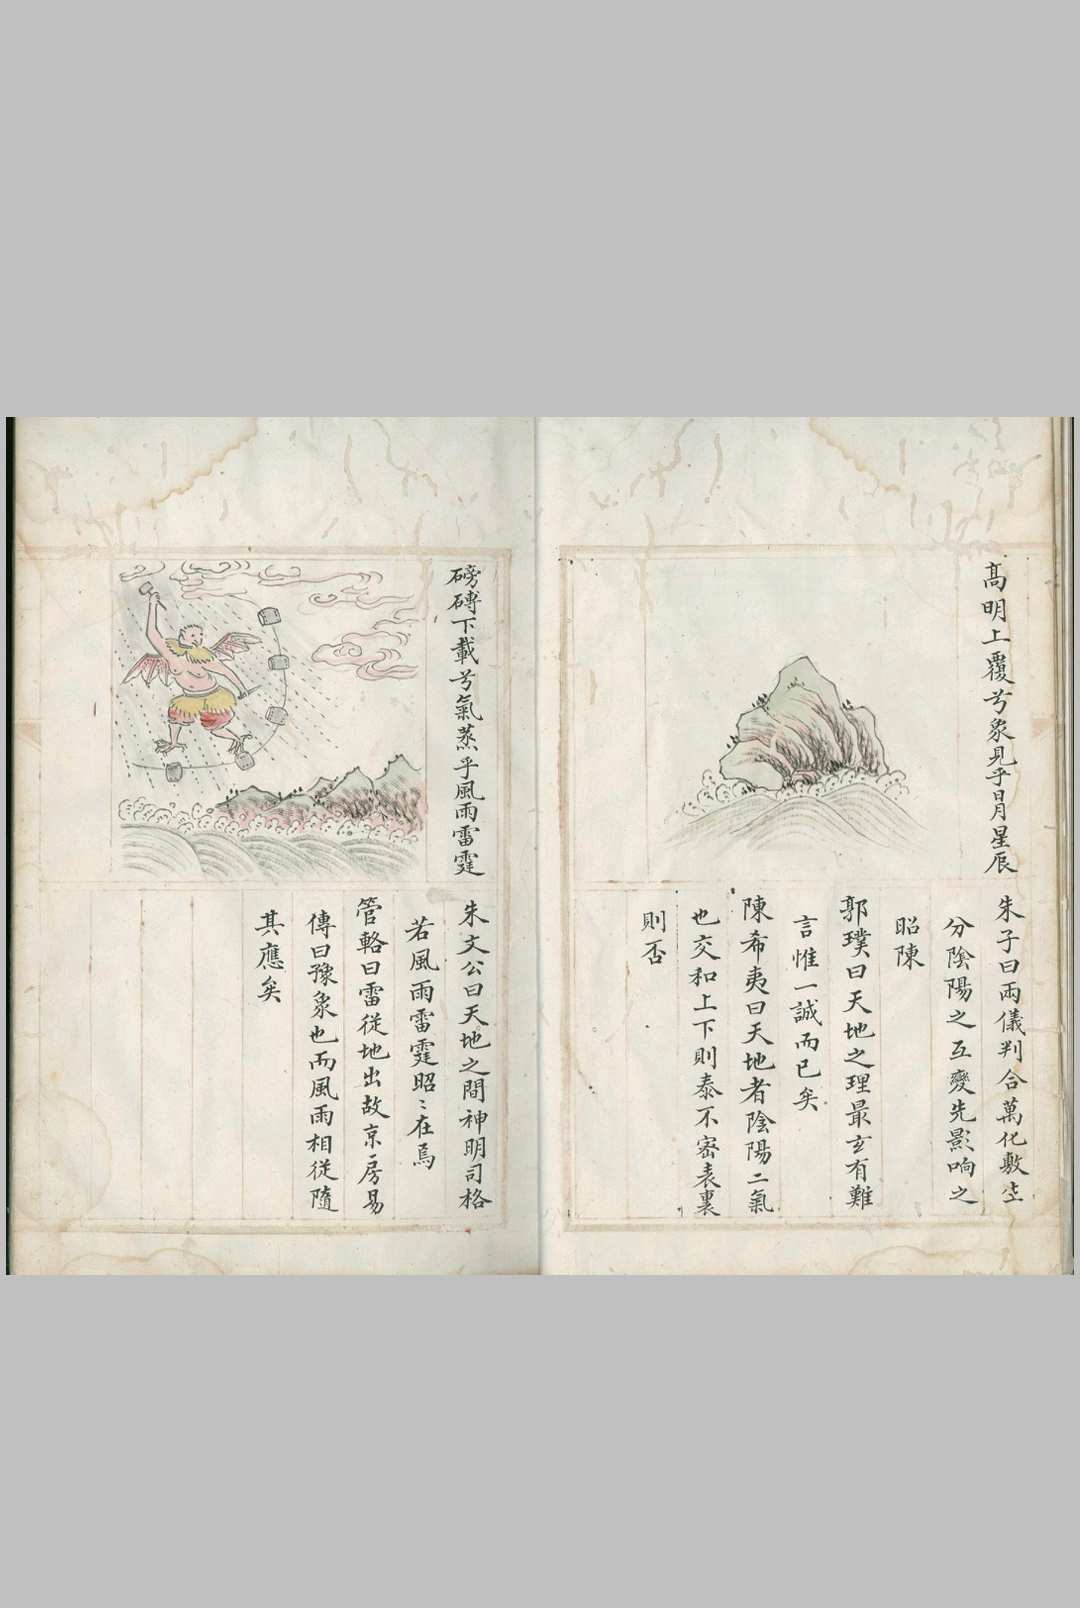 高明上覆兮象見乎日月星辰
朱子曰兩儀判合萬化敷生
分陰陽之互變先影响之
昭陳
郭璞曰天地之理最玄有難
言惟一誠而已矣
陳希夷曰天地者陰陽二氣
也交和上下則泰不密表裏
則否
磅礡下載兮氣蒸乎風雨雷霆
朱文公曰天地之間神明司格
若風雨雷霆昭〻在焉
管輅曰雷從地出故京房易
傳曰豫象也而風雨相從隨
其應矣